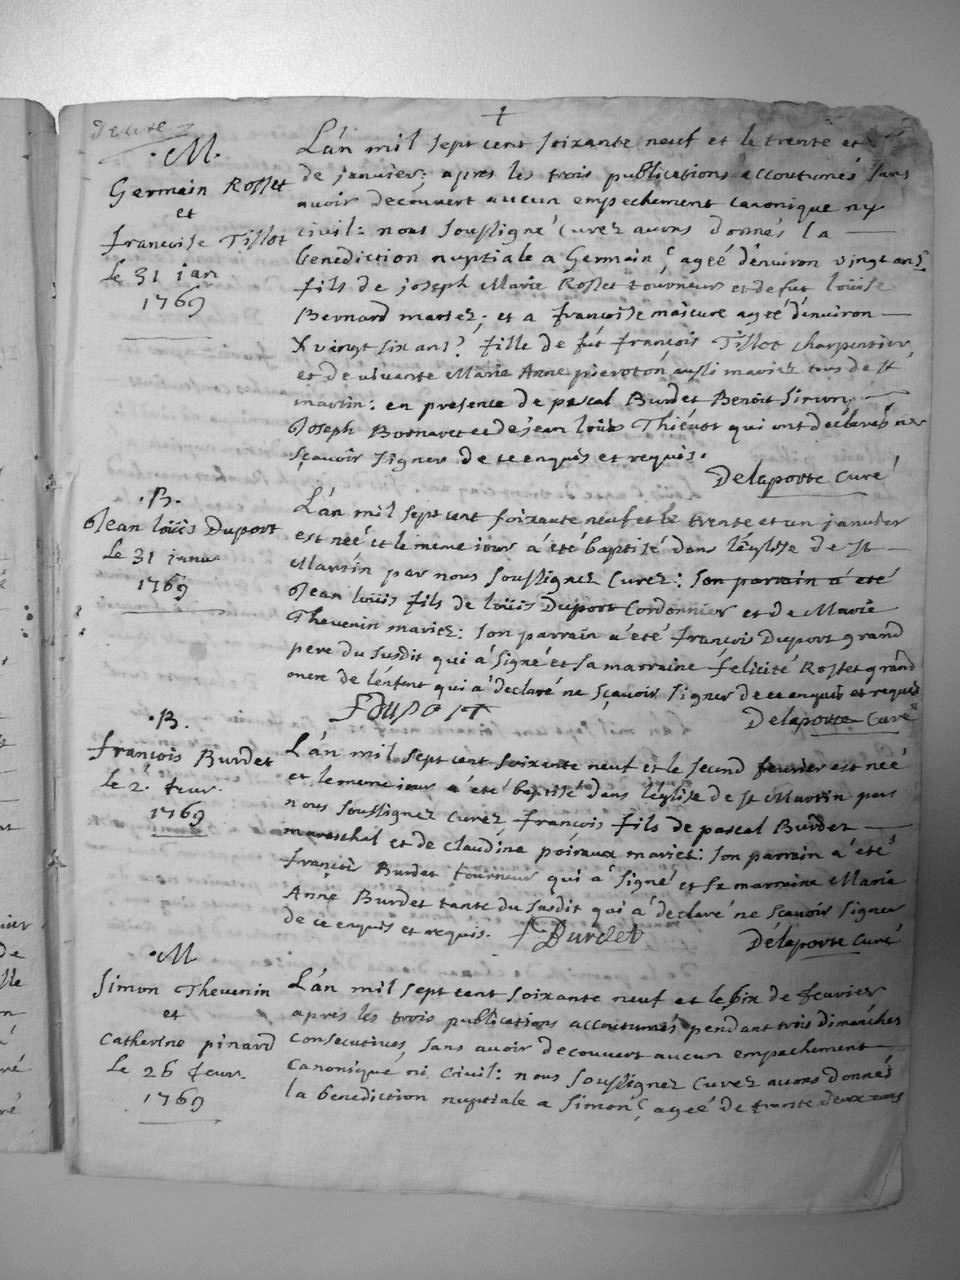 deuxe
✝
.M.
Germain Rosset
et
francoise Tissot
le 31 jan
1769
L'an mil sept cent soixante neuf et le trente et
de janvier; apres les trois publications accoutumés sans
avoir découvert aucun empechement canonique ny
civil: nous soussigné curez avons donnés la
benediction nuptiale a Germain, ageé d'environ vingt ans
fils de joseph Marie Rosset tourneur et de fut loüise
Bernard mariez; et a francoise majeure ageé d'environ
vingt six ans? fille de fut françois Tissot charpentier
et de vivante Marie Anne pieroton aussi mariez tous de st
martin: en presence de pascal Burdet Benoit Simon,
Joseph Bornavet et de jean loüis Thiénot qui ont déclarés ne
sçavoir signer de ce enquis et requis.
Delaporte curé
.B.
Jean loüis Duport
le 31 janv
1769
L'an mil sept cent soixante neuf et le trente et un janvier
est néé et le meme jour a été baptisé dans l'église de st
Martin par nous soussignez curez: son parrain a été
Jean loüis fils de loüis Duport Cordonnier et de Marie
Thevenin mariez: son parrain a été françois Duport grand
pere du susdit qui a signé et sa marraine félicité Rosset grand
mere de l'enfant qui a declaré ne sçavoir signer de ce enquis et requis
F Duport
Delaporte Curé
.B.
françois Burdet
le 2. fevr.
1769
L'an mil sept cent soixante neuf et le second fevrier est néé
et le meme jour a été baptisé dans l'église de st Martin par
nous soussignez curez françois fils de pascal Burdet
mareschal et de claudine poiraux mariet: son parrain a été
françois Burdet tourneur qui a signé et sa marraine Marie
Anne Burdet tante du susdit qui a declaré ne scavoir signer
de ce enquis et requis.
f Burdet
Délaporte curé
.M
Simon Thevenin
et
Catherine pinard
le 26 fevr.
1769
L'an mil sept cent soixante neuf et le six de fevrier
apres les trois publications accoutumés pendant trois dimanches
consecutives, sans avoir decouvert aucun empechement
canonique ni civil: nous soussignez curez avons donnés
la benediction nuptiale a Simon, ageé de trante deux ans